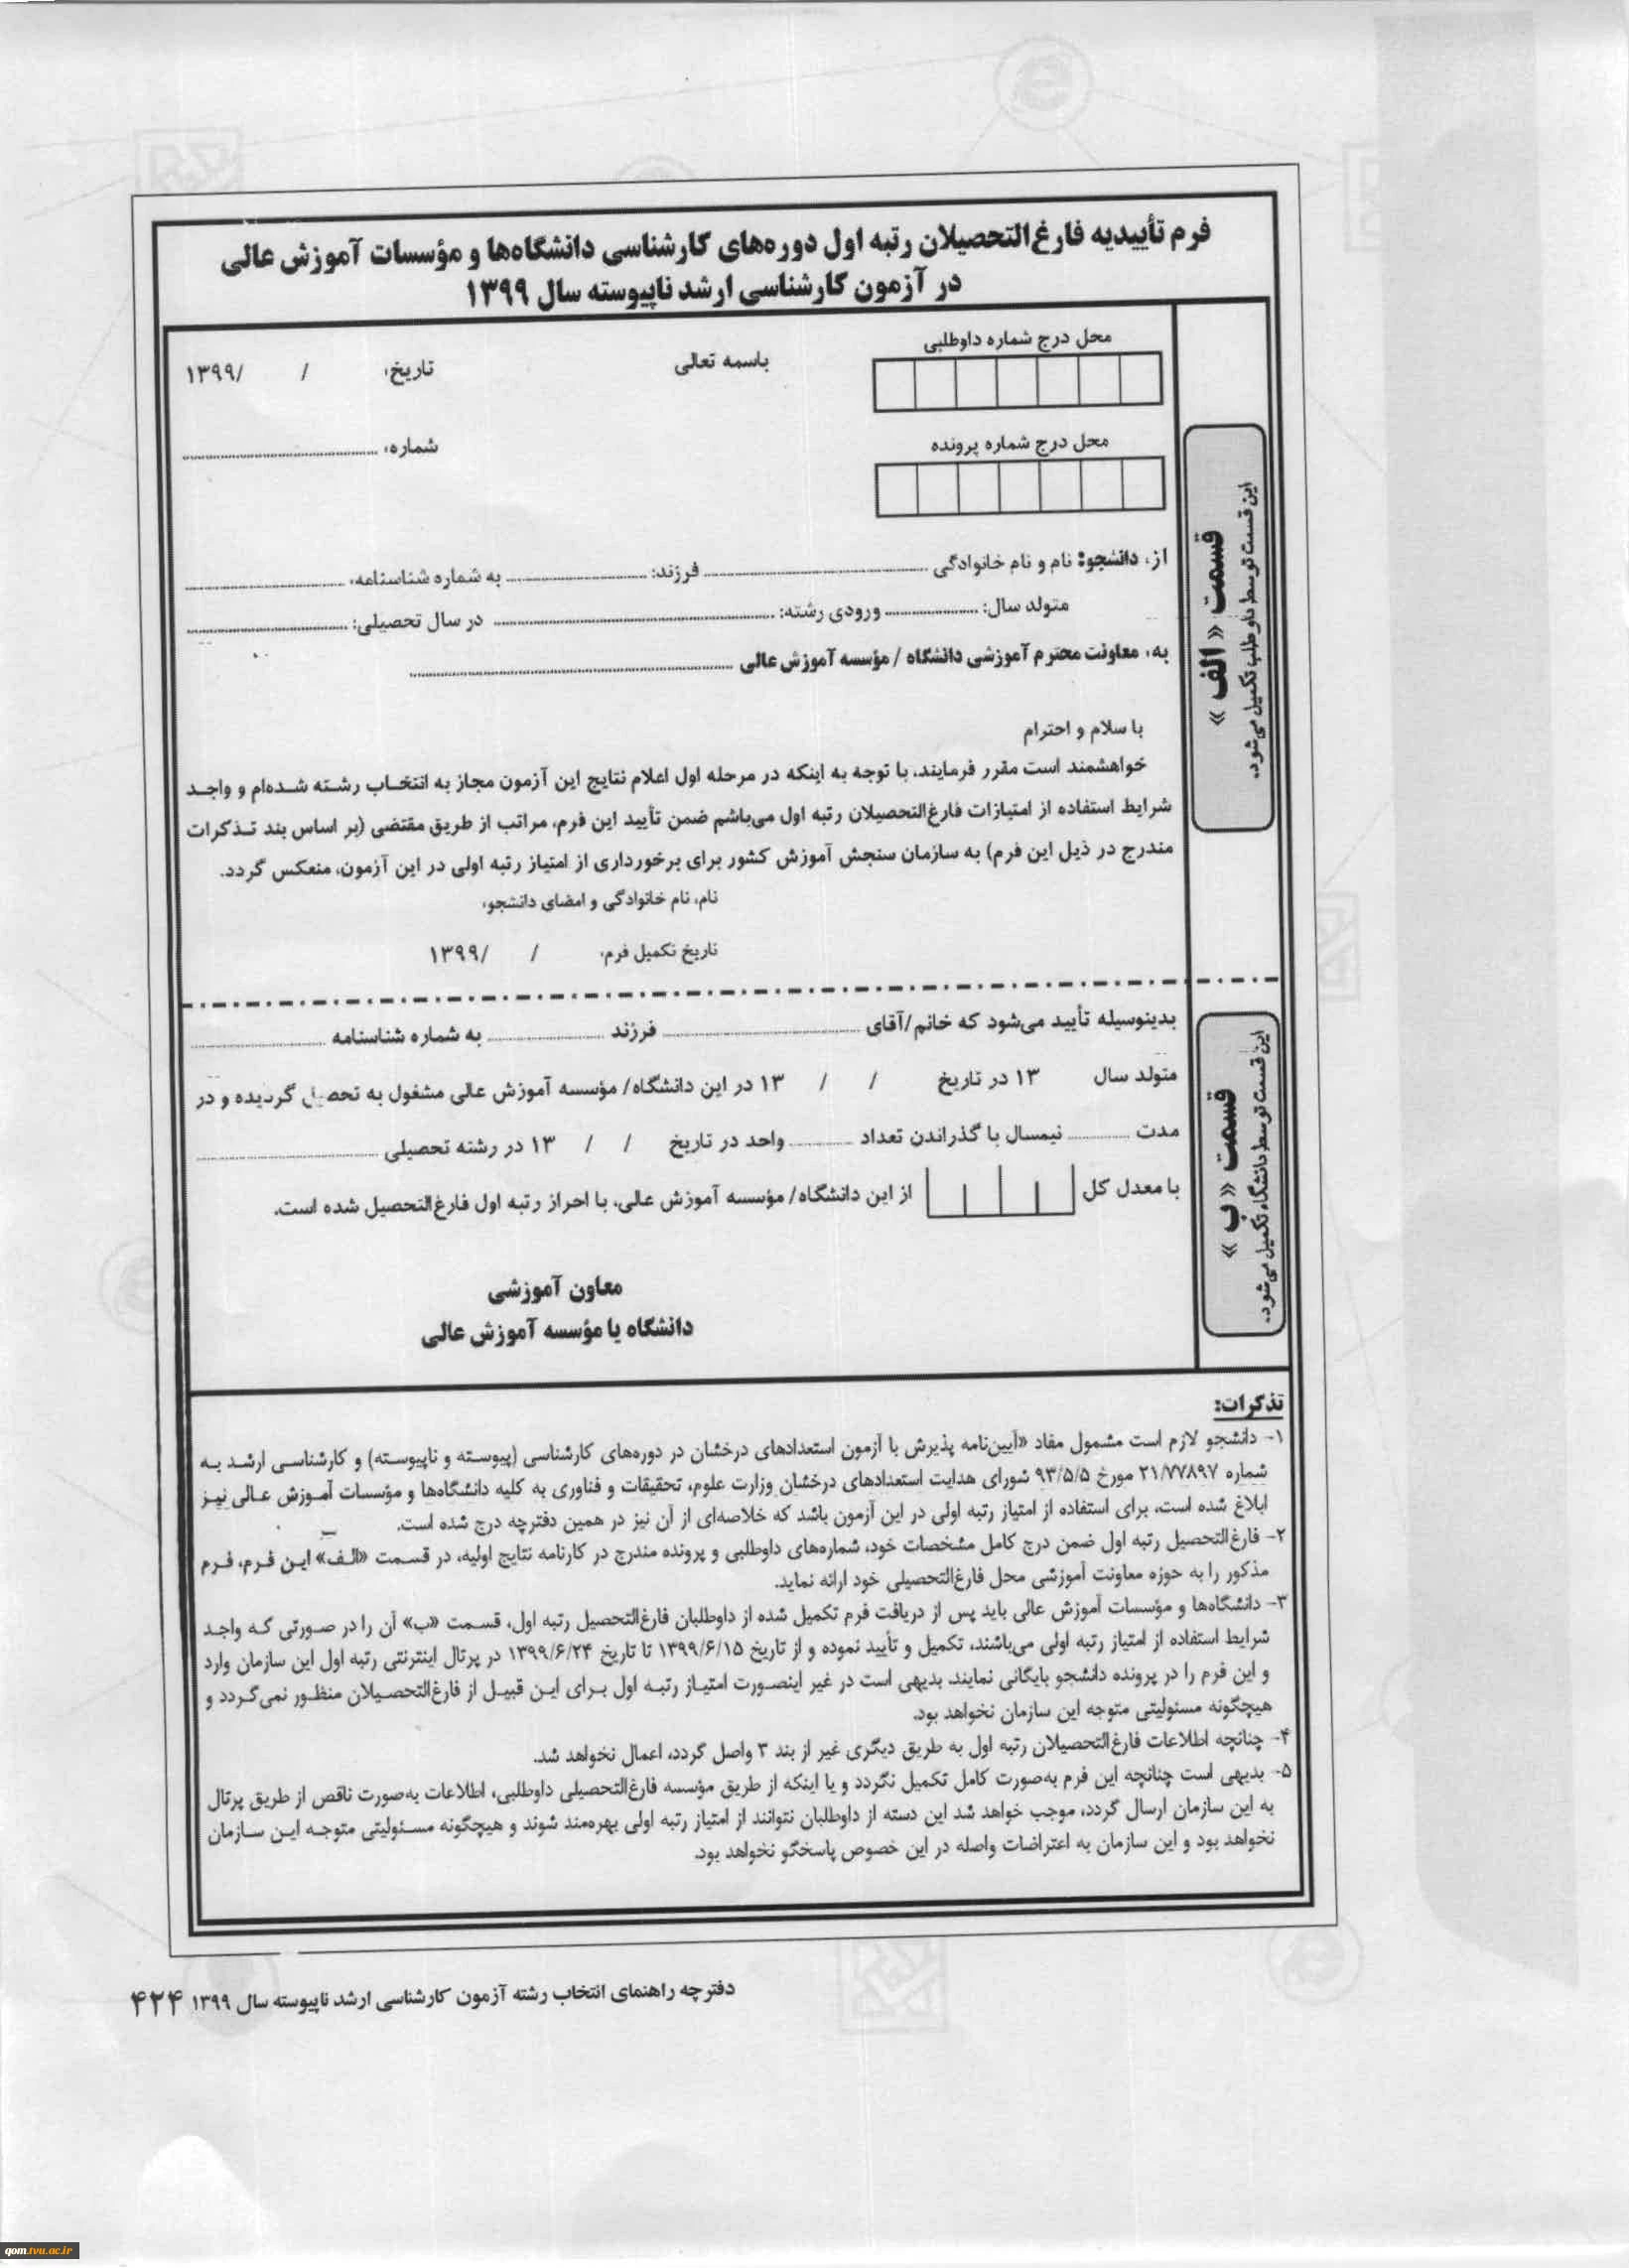 فرم تأییدیه فارغ‌التحصیلان رتبه اول دوره‌های کارشناسی دانشگاه‌ها و مؤسسات آموزش عالی
در آزمون کارشناسی ارشد ناپیوسته سال ۱۳۹۹
محل درج شماره داوطلبی
باسمه تعالی
تاریخ: / /۱۳۹۹
محل درج شماره پرونده
شماره:
قسمت «الف»
این قسمت توسط داوطلب تکمیل می‌شود.
از: دانشجو: نام و نام خانوادگی فرزند: به شماره شناسنامه:
متولد سال: ورودی رشته: در سال تحصیلی:
به: معاونت محترم آموزشی دانشگاه / مؤسسه آموزش عالی
با سلام و احترام
خواهشمند است مقرر فرمایند، با توجه به اینکه در مرحله اول اعلام نتایج این آزمون مجاز به انتخاب رشته شده‌ام و واجد
شرایط استفاده از امتیازات فارغ‌التحصیلان رتبه اول می‌باشم ضمن تأیید این فرم، مراتب از طریق مقتضی (بر اساس بند تذکرات
مندرج در ذیل این فرم) به سازمان سنجش آموزش کشور برای برخورداری از امتیاز رتبه اولی در این آزمون، منعکس گردد.
نام، نام خانوادگی و امضای دانشجو:
تاریخ تکمیل فرم: / /۱۳۹۹
قسمت «ب»
این قسمت توسط دانشگاه تکمیل می‌شود.
بدینوسیله تأیید می‌شود که خانم/آقای فرزند به شماره شناسنامه
متولد سال ۱۳ در تاریخ / / ۱۳ در این دانشگاه/ مؤسسه آموزش عالی مشغول به تحصیل گردیده و در
مدت نیمسال با گذراندن تعداد واحد در تاریخ / / ۱۳ در رشته تحصیلی
با معدل کل از این دانشگاه/ مؤسسه آموزش عالی، با احراز رتبه اول فارغ‌التحصیل شده است.
معاون آموزشی
دانشگاه یا مؤسسه آموزش عالی
تذکرات:
۱- دانشجو لازم است مشمول مفاد «آیین‌نامه پذیرش با آزمون استعدادهای درخشان در دوره‌های کارشناسی (پیوسته و ناپیوسته) و کارشناسی ارشد به
شماره ۲۱/۷۷۸۹۷ مورخ ۹۳/۵/۵ شورای هدایت استعدادهای درخشان وزارت علوم، تحقیقات و فناوری به کلیه دانشگاه‌ها و مؤسسات آموزش عالی نیز
ابلاغ شده است، برای استفاده از امتیاز رتبه اولی در این آزمون باشد که خلاصه‌ای از آن نیز در همین دفترچه درج شده است.
۲- فارغ‌التحصیل رتبه اول ضمن درج کامل مشخصات خود، شماره‌های داوطلبی و پرونده مندرج در کارنامه نتایج اولیه، در قسمت «الف» این فرم، فرم
مذکور را به حوزه معاونت آموزشی محل فارغ‌التحصیلی خود ارائه نماید.
۳- دانشگاه‌ها و مؤسسات آموزش عالی باید پس از دریافت فرم تکمیل شده از داوطلبان فارغ‌التحصیل رتبه اول، قسمت «ب» آن را در صورتی که واجد
شرایط استفاده از امتیاز رتبه اولی می‌باشند، تکمیل و تأیید نموده و از تاریخ ۱۳۹۹/۶/۱۵ تا تاریخ ۱۳۹۹/۶/۲۴ در پرتال اینترنتی رتبه اول این سازمان وارد
و این فرم را در پرونده دانشجو بایگانی نمایند. بدیهی است در غیر اینصورت امتیاز رتبه اول برای این قبیل از فارغ‌التحصیلان منظور نمی‌گردد و
هیچگونه مسئولیتی متوجه این سازمان نخواهد بود.
۴- چنانچه اطلاعات فارغ‌التحصیلان رتبه اول به طریق دیگری غیر از بند ۳ واصل گردد، اعمال نخواهد شد.
۵- بدیهی است چنانچه این فرم به‌صورت کامل تکمیل نگردد و یا اینکه از طریق مؤسسه فارغ‌التحصیلی داوطلبی، اطلاعات به‌صورت ناقص از طریق پرتال
به این سازمان ارسال گردد، موجب خواهد شد این دسته از داوطلبان نتوانند از امتیاز رتبه اولی بهره‌مند شوند و هیچگونه مسئولیتی متوجه این سازمان
نخواهد بود و این سازمان به اعتراضات واصله در این خصوص پاسخگو نخواهد بود.
دفترچه راهنمای انتخاب رشته آزمون کارشناسی ارشد ناپیوسته سال ۱۳۹۹ ۴۲۴
qom.tvu.ac.ir